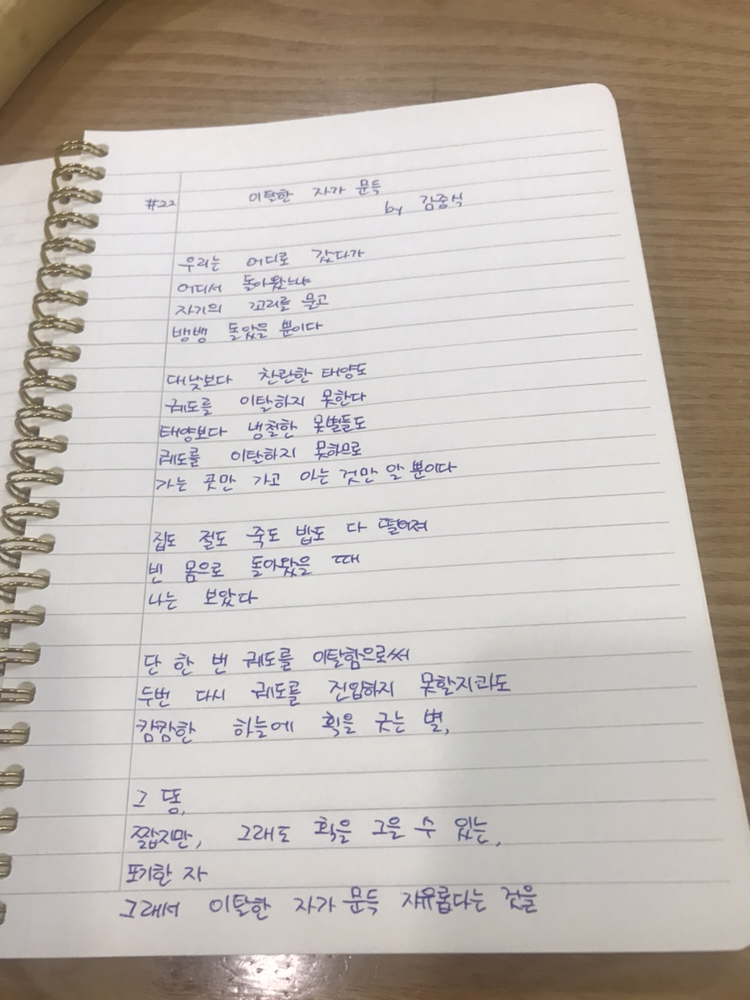 #22 이탈한 자가 문득
by 김중식
우리는 어디로 갔다가
어디서 돌아왔느냐
자기의 꼬리를 물고
뱅뱅 돌았을 뿐이다
대낮보다 찬란한 태양도
궤도를 이탈하지 못한다
태양보다 냉철한 뭇별들도
궤도를 이탈하지 못하므로
가는 곳만 가고 아는 것만 알 뿐이다
집도 절도 죽도 밥도 다 떨어져
빈 몸으로 돌아왔을 때
나는 보았다
단 한 번 궤도를 이탈함으로써
두번 다시 궤도를 진입하지 못할지라도
캄캄한 하늘에 획을 긋는 별,
그 똥,
짧지만, 그래도 획을 그을 수 있는,
포기한 자
그래서 이탈한 자가 문득 자유롭다는 것을